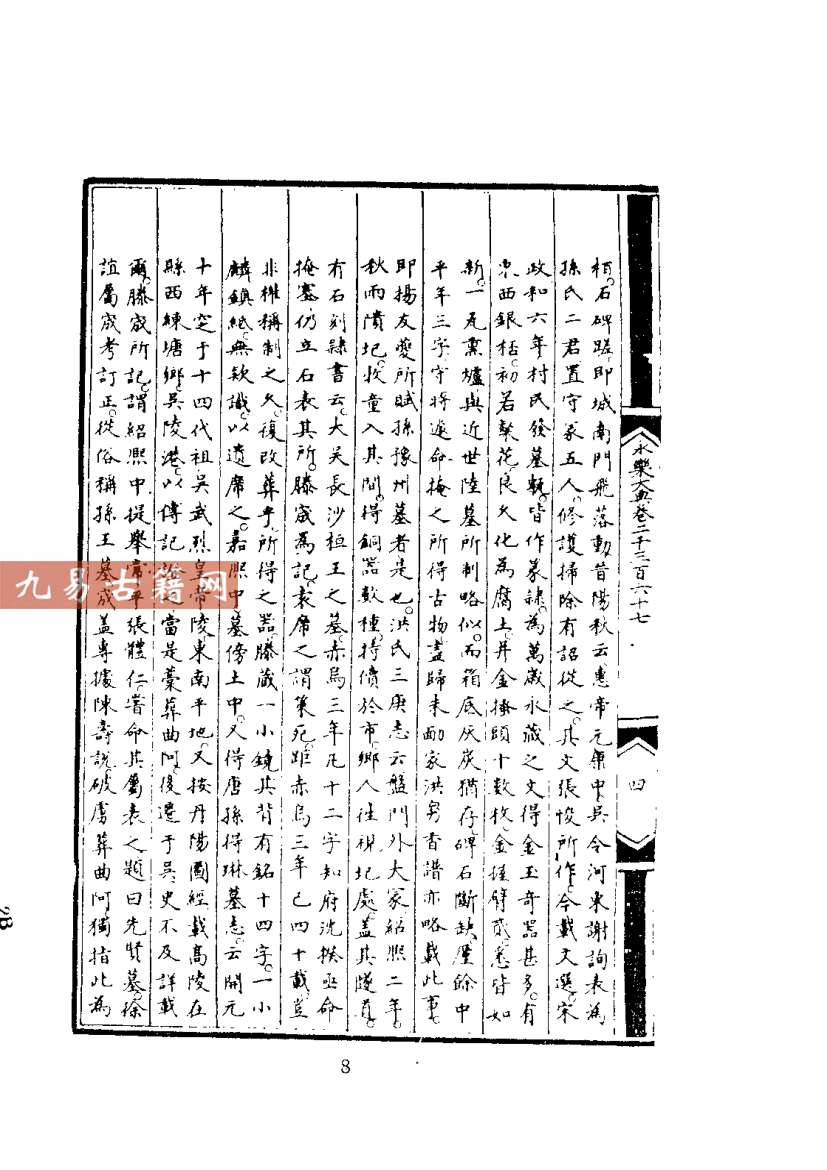 永樂大典卷二千三百六十七
四
栢。石碑蹉。即城南門飛落動。昔陽秋云。惠帝元康中。吳令河東謝詢表為
孫氏二君置守冢五人。修護掃除。有詔從之。其文張悛所作。今載文選。宋
政和六年。村民發墓。甎皆作篆隸。為萬歲永藏之文。得金玉奇器甚多。有
東西銀桮。初若粲花。良久化為腐土。并金搔頭十數枚。金握臂。悉皆如
新。一瓦薰爐。與近世陸墓所制略似。而箱底灰炭猶存。碑石斷缺。僅餘中
平年三字。守將遽命掩之。所得古物。盡歸朱勔家。洪芻香譜亦略載此事。
即揚友夔所賦孫豫州墓者是也。洪氏三庚志云。盤門外大冢。紹熙二年。
秋雨隤圮。牧童入其間。得銅器數種。持貨於市。鄉人往視圮處。蓋其隧首。
有石刻隸書云。大吳長沙桓王之墓。赤烏三年。凡十二字。知府沈揆亟命
掩塞。仍立石表其所。滕宬為記。袁席之謂策死。距赤烏三年已四十載。豈
非權稱制之久。復改葬乎。所得之器。滕藏一小鏡。其背有銘十四字。一小
麟鎮紙。無欵識。以遺席之。嘉熙中。墓傍土中。又得唐孫得琳墓志。云開元
十年。窆于十四代祖吳武烈皇帝陵東南平地。又按丹陽圖經載高陵在
縣西練塘鄉。吳陵港。以傳記之當是藁葬曲阿。後遷于吳。史不及詳載
爾。滕宬所記。謂紹熙中。提舉常平張體仁。嘗命其屬表之。題曰先賢墓。徐
誼屬宬考訂正。從俗稱孫王墓。宬盖專據陳壽說。破虜葬曲阿。獨指此為
九易古籍网
8
2B